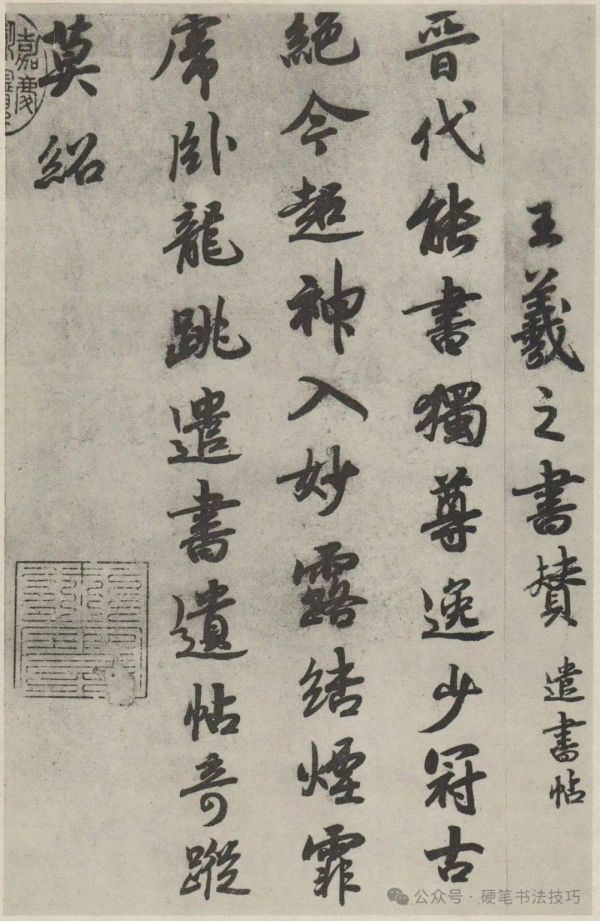 王羲之書賛 遣書帖
晉代能書獨尊逸少冠古
絕今超神入妙露結煙霏
虎卧龍跳遣書遺帖奇蹤
莫紹
嘉慶
公众号 · 硬笔书法技巧